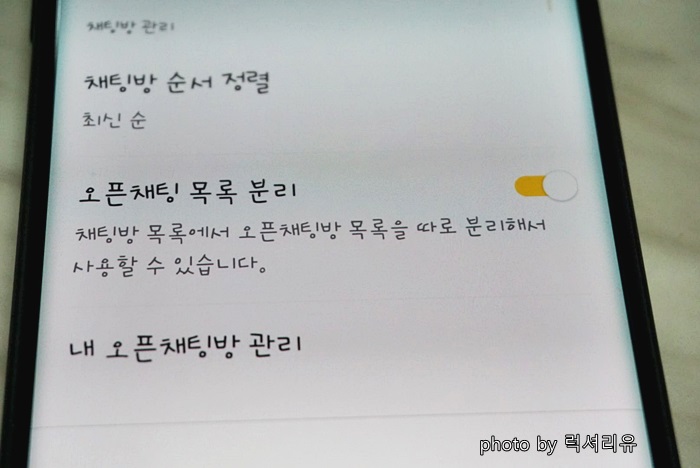 채팅방 관리
채팅방 순서 정렬
최신 순
오픈채팅 목록 분리
채팅방 목록에서 오픈채팅방 목록을 따로 분리해서
사용할 수 있습니다.
내 오픈채팅방 관리
photo by 럭셔리유